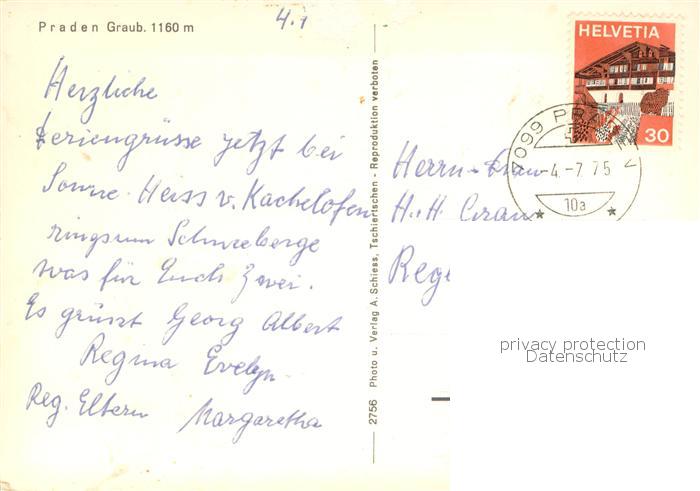 Praden Graub. 1160 m
4.1
Herzliche
Feriengrüsse jetzt bei
Sonne Heiss v. Kachelofen
ringsum Schneeberge
was für Euch Zwei.
Es grüsst Georg Albert
Regina Evelyn
Reg. Eltern Margaretha
2756 Photo u. Verlag A. Schiess, Tschiertschen - Reproduktion verboten
HELVETIA
30
7099 PRADEN
-4.-7 75
10a
Herrn-Frau
H. H.
Rege
privacy protection
Datenschutz